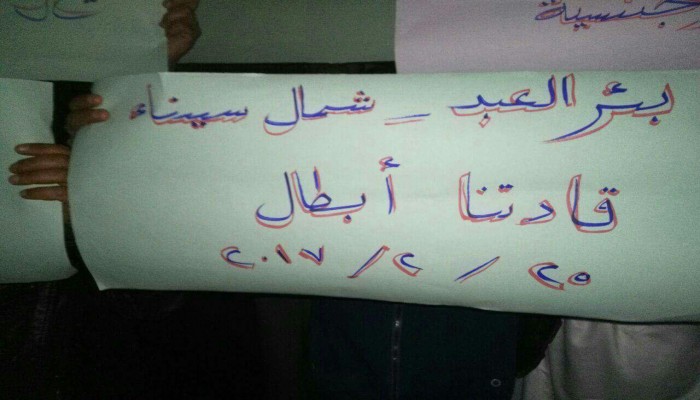 بئر العبد - شمال سيناء
قادتنا أبطال
٢٥ / ٢ / ٢٠١٧